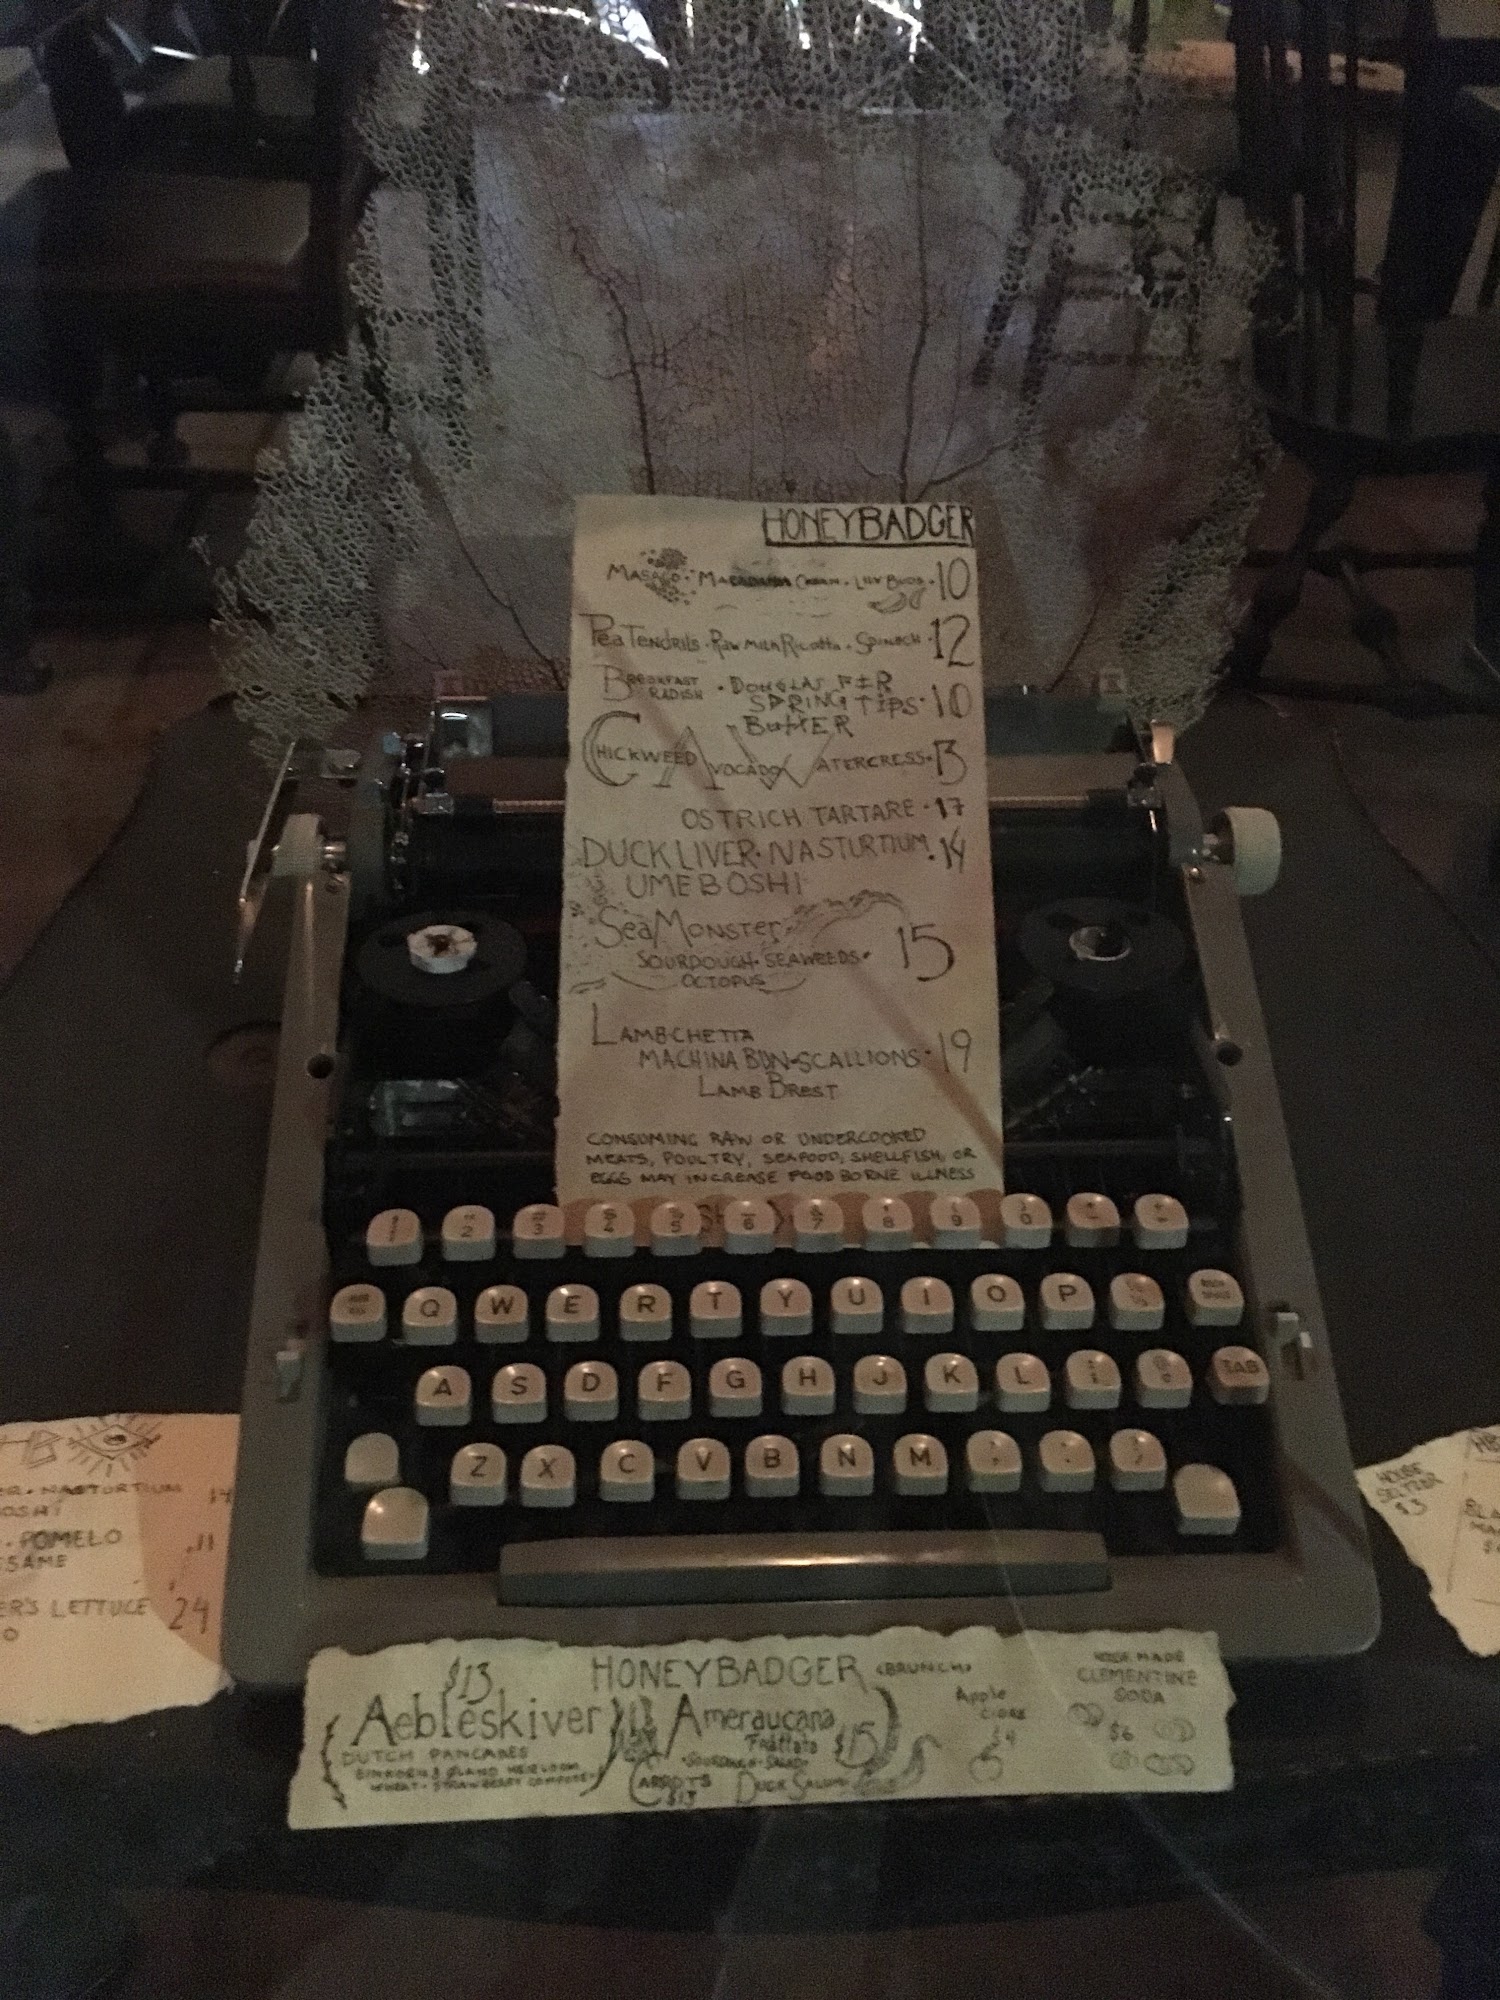 HONEYBADGER
MASAGO · MACADAMIA CREAM · LILY BUDS · 10
PEA TENDRILS · RAW MILK RICOTTA · SPINACH · 12
BREAKFAST RADISH · DOUGLAS FIR
SPRING TIPS · 10
BUTTER
CHICKWEED AVOCADO WATERCRESS · 13
OSTRICH TARTARE · 17
DUCK LIVER · NASTURTIUM · 14
UMEBOSHI
SEA MONSTER
SOURDOUGH · SEAWEEDS · 15
OCTOPUS
LAMB·CHETTA
MACHINA BUN · SCALLIONS · 19
LAMB BREST
CONSUMING RAW OR UNDERCOOKED
MEATS, POULTRY, SEAFOOD, SHELLFISH, OR
EGGS MAY INCREASE FOOD BORNE ILLNESS
2 3 4 5 6 7 8 9 0
Q W E R T Y U I O P
A S D F G H J K L TAB
Z X C V B N M
NASTURTIUM 14
OSHI
· POMELO 11
SAME
ER'S LETTUCE 24
HOUSE
SELTZER
$3
$13 HONEYBADGER (BRUNCH)
Aebleskiver
DUTCH PANCAKES
EINKORN & HEIRLOOM
WHEAT · STRAWBERRY COMPOTE
Ameraucana
Frittata $15
· SOURDOUGH · SALAD
CARROTS
$13
DUCK SALUMI
Apple
CIDER
$4
HOUSE MADE
CLEMENTINE
SODA
$6